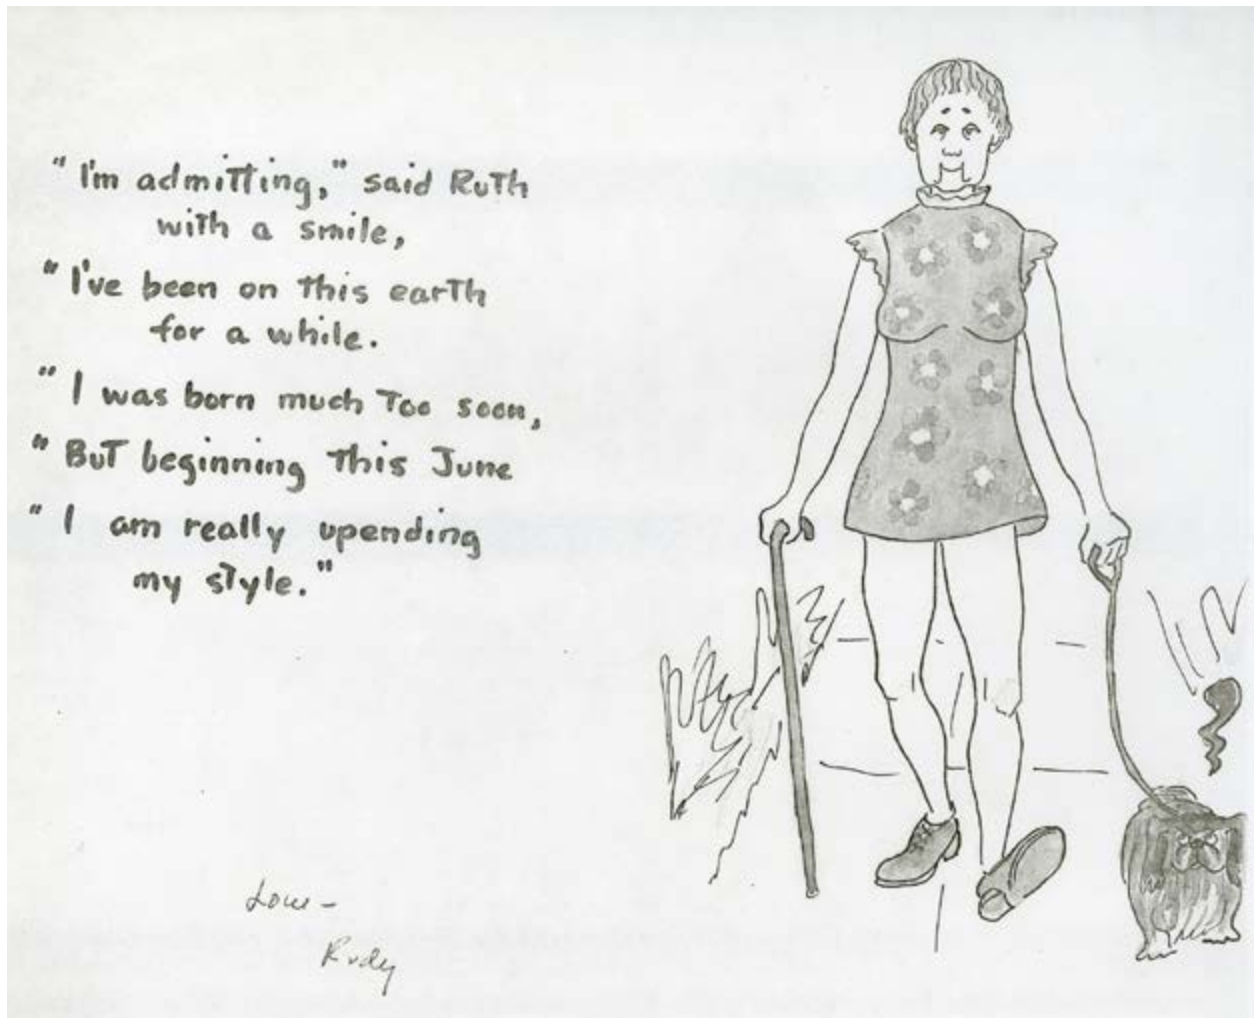 "I'm admitting," said Ruth
with a smile,
"I've been on this earth
for a while.
"I was born much too soon,
"But beginning this June
"I am really upending
my style."
Love-
Rudy